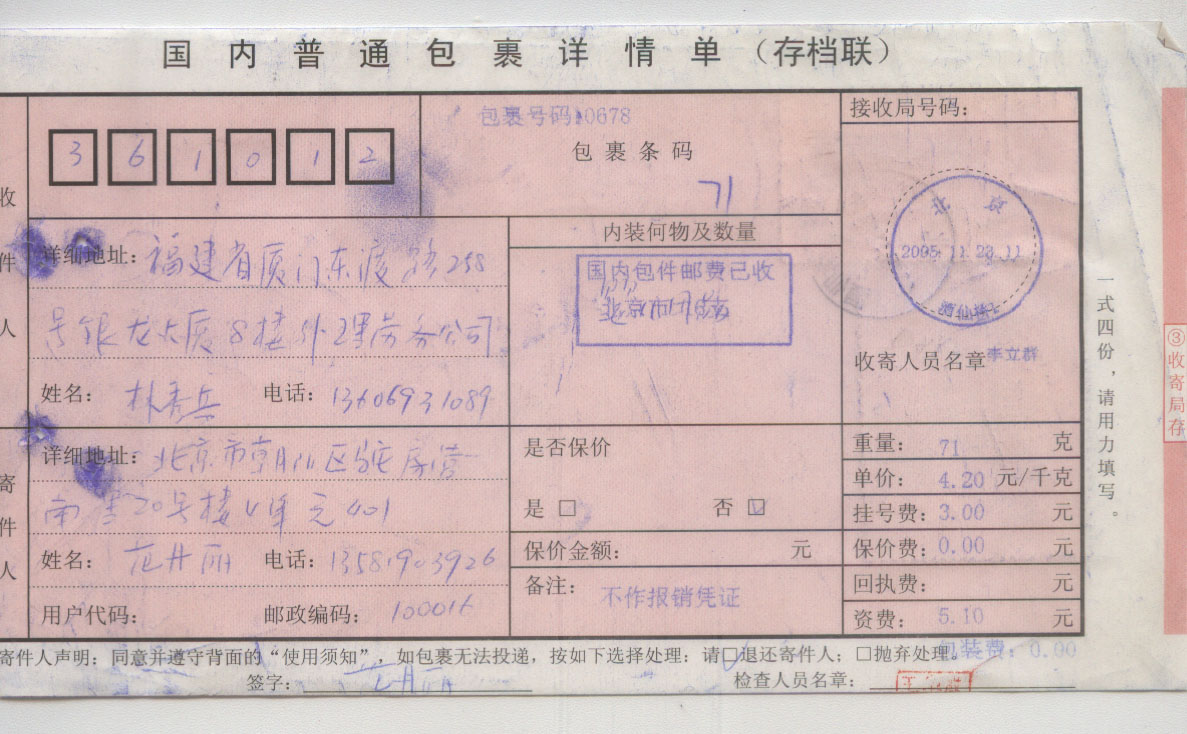 国内普通包裹详情单（存档联）
收件人
361012
包裹号码:0678
包裹条码
71
接收局号码：
详细地址：福建省厦门东渡路258
号银龙大厦8楼外理劳务公司
姓名：林秀兵 电话：13606931089
内装何物及数量
国内包件邮费已收
北京
北京
2005.11.23.11
收寄人员名章 李立群
寄件人
详细地址：北京市朝阳区驼房营
南里20号楼4单元401
姓名：范丹丽 电话：13581903926
用户代码： 邮政编码：100016
是否保价
是□ 否☑
保价金额： 元
备注：不作报销凭证
重量：71 克
单价：4.20 元/千克
挂号费：3.00 元
保价费：0.00 元
回执费： 元
资费：5.10 元
包装费：0.00
寄件人声明：同意并遵守背面的“使用须知”，如包裹无法投递，按如下选择处理：请☑退还寄件人；□抛弃处理。
签字：范丹丽 检查人员名章：
一式四份，请用力填写。
③收寄局存